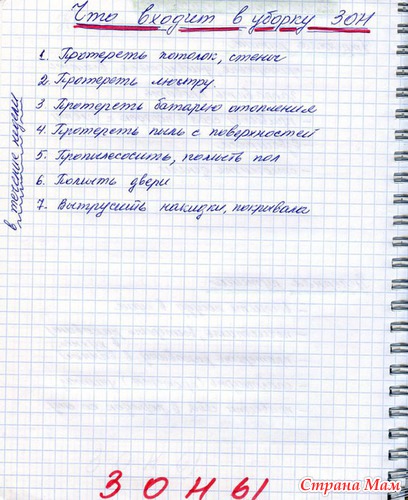 Что входит в уборку ЗОН
1. Протереть потолок, стены
2. Протереть люстру.
3 Протереть батарею отопления
4. Протереть пыль с поверхностей
5. Пропилесосить, помыть пол
6. Помыть двери
7. Вытрусить накидки, покрывала
в течение недели
ЗОНЫ
Страна Мам